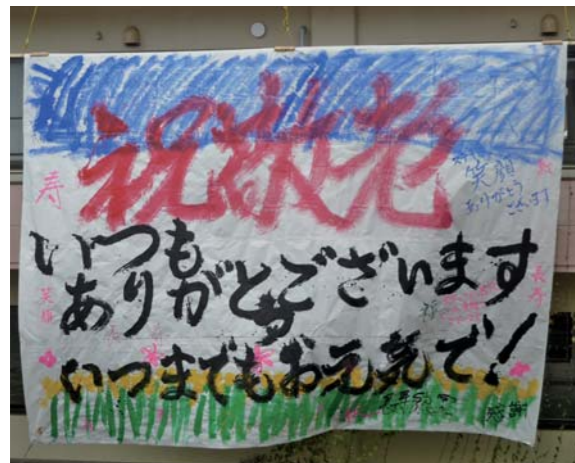 祝敬老
寿
笑顔
ありがとう
ございます
いつも
ありがとうございます
長寿
いつまでもお元気で!
感謝